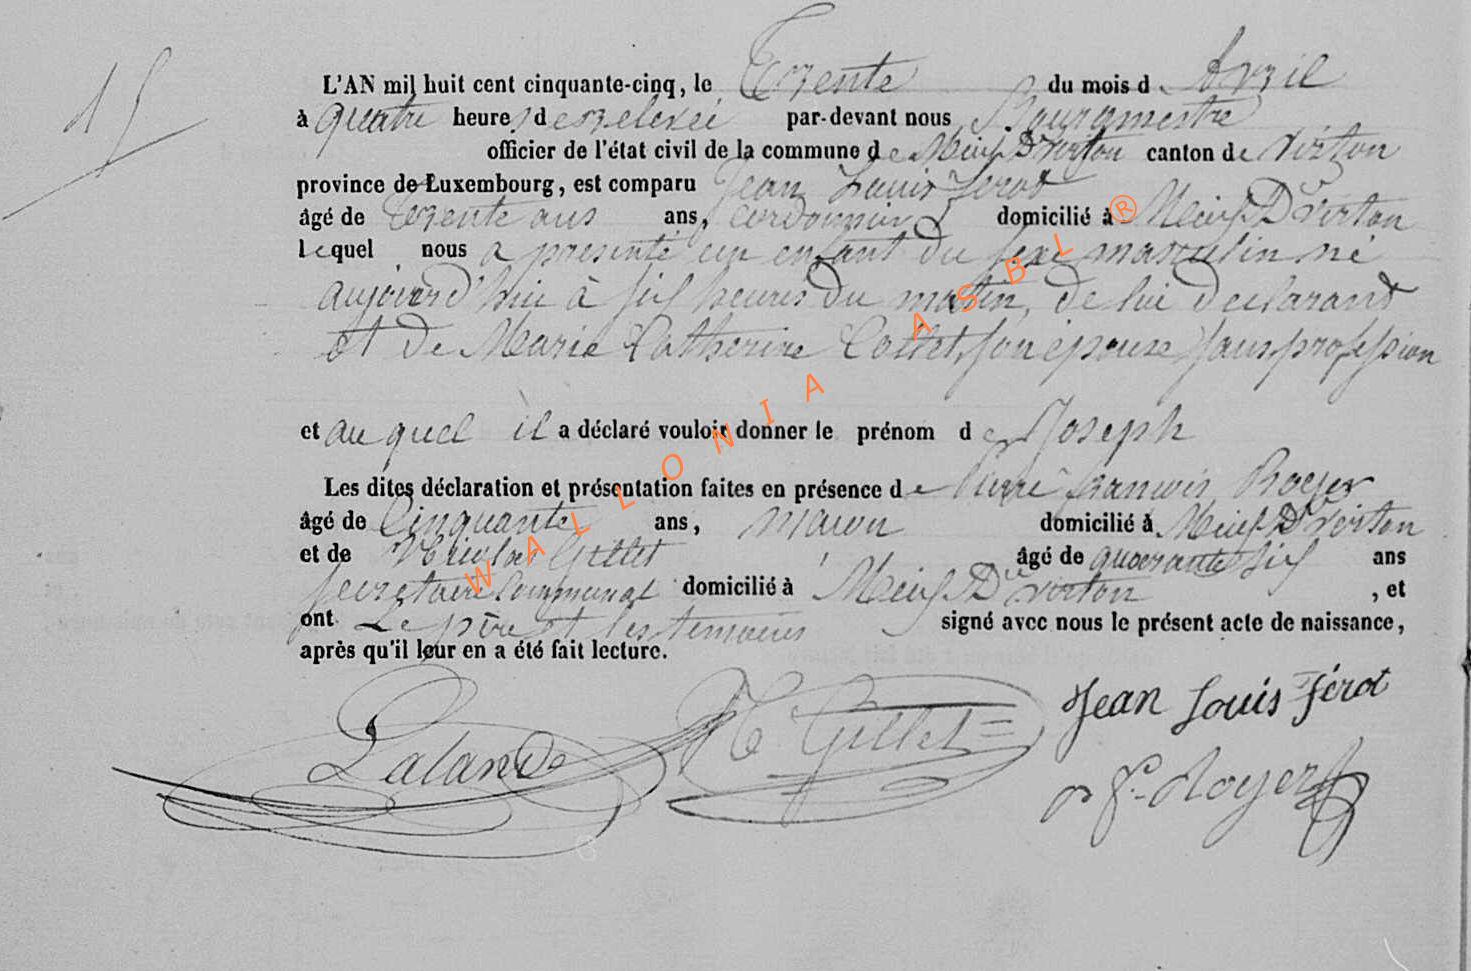 15
L'AN mil huit cent cinquante-cinq, le Trente du mois d'Avril
à quatre heures de relevée par-devant nous Bourgmestre
officier de l'état civil de la commune de Meix Dt Virton canton de Virton
province de Luxembourg, est comparu Jean Louis Férot
âgé de Trente ans ans, cordonnier domicilié à Meix Dt Virton
lequel nous a présenté un enfant du sexe masculin né
aujourd'hui à six heures du matin, de lui declarant
et de Marie Catherine Collet, son épouse sans profession
et au quel il a déclaré vouloir donner le prénom de Joseph
Les dites déclaration et présentation faites en présence de Pierre françois Royer
âgé de Cinquante ans, maçon domicilié à Meix Dt Virton
et de Nicolas Gillet âgé de quarante six ans
secretaire Communal domicilié à Meix Dt Virton, et
ont Le père et les temoins signé avec nous le présent acte de naissance,
après qu'il leur en a été fait lecture.
Jean Louis Férot
Lalande N. Gillet
p f. Royer
WALLONIA ASBL ®